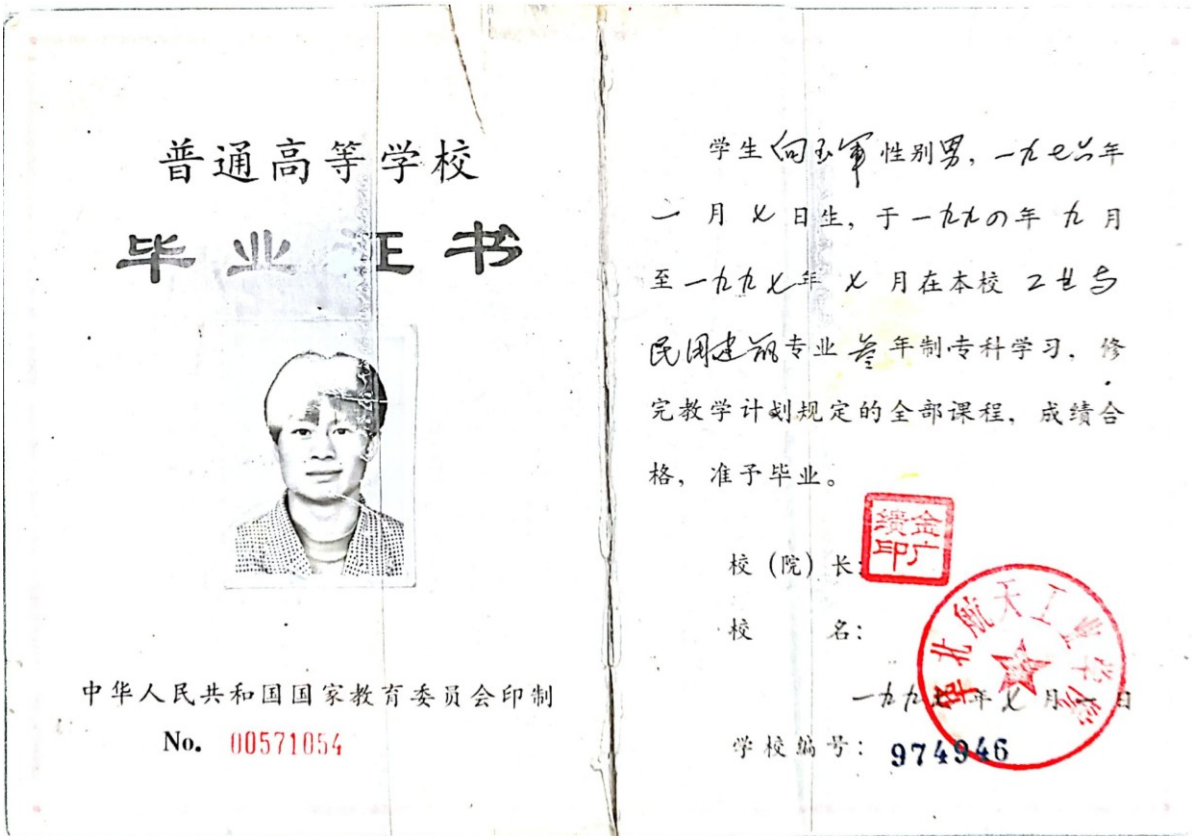 普通高等学校
毕业证书
中华人民共和国国家教育委员会印制
No. 00571054
学生向玉军性别男，一九七六年
一月七日生，于一九九四年九月
至一九九七年七月在本校工业与
民用建筑专业叁年制专科学习，修
完教学计划规定的全部课程，成绩合
格，准予毕业。
校（院）长：
金广
缋印
校 名：
华北航天工业学院
一九九七年七月一日
学校编号：974946